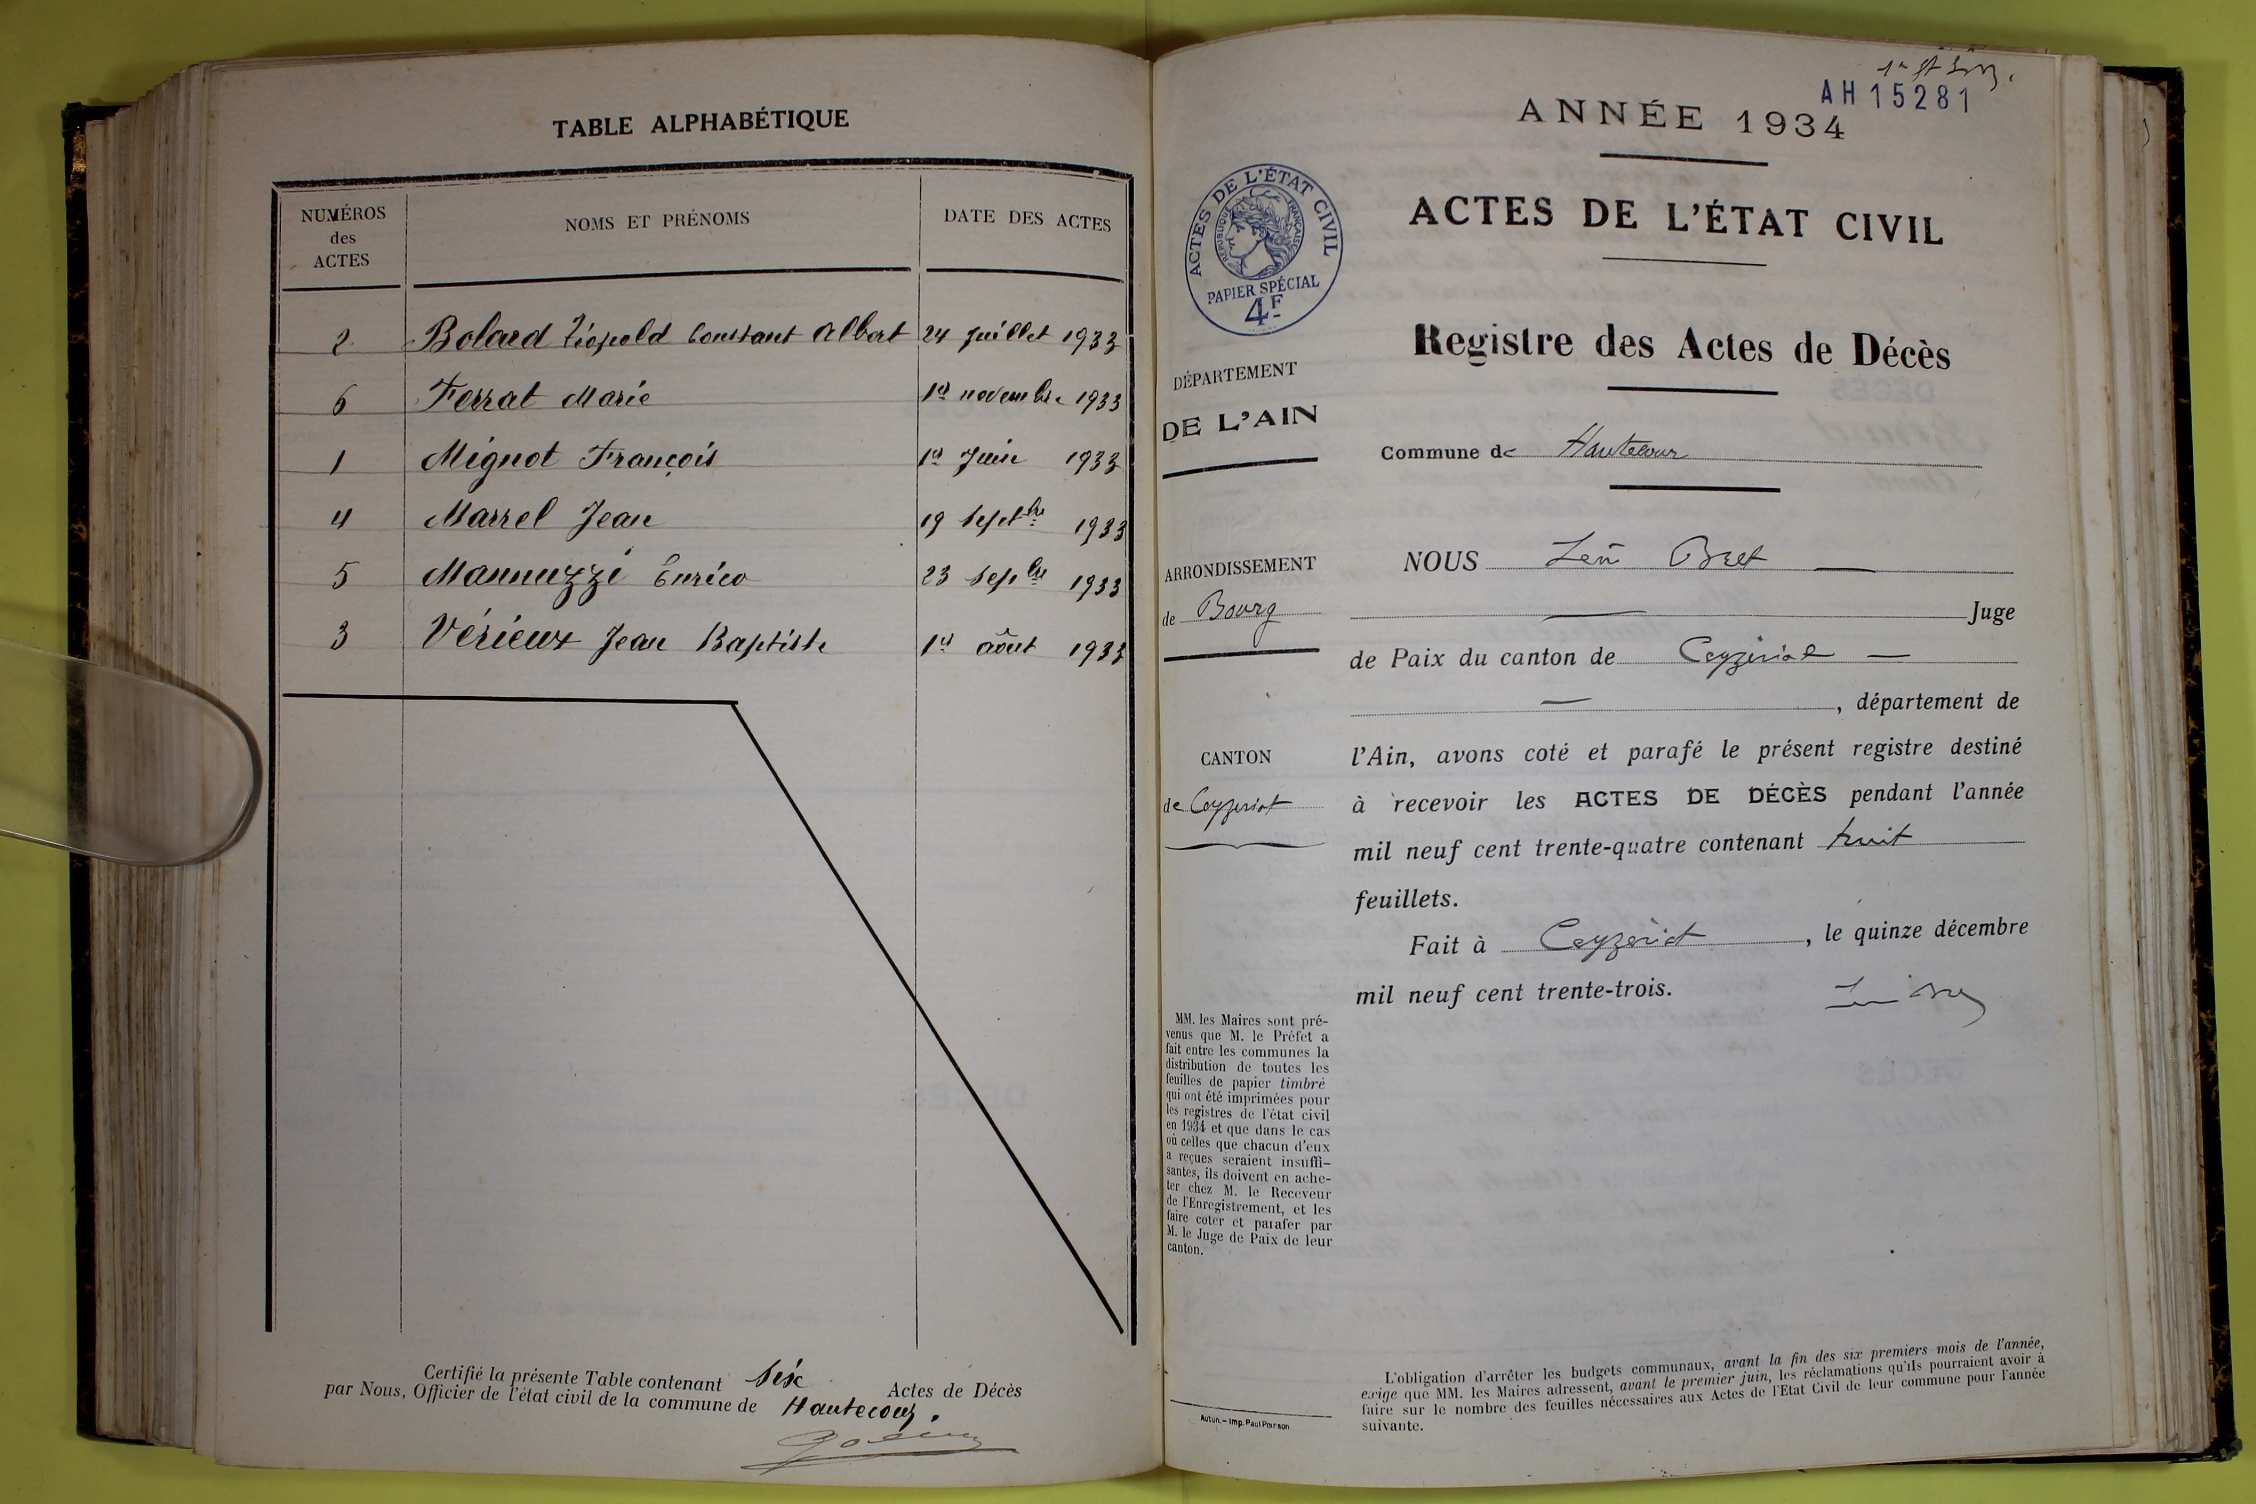 TABLE ALPHABÉTIQUE
NUMÉROS
des
ACTES
NOMS ET PRÉNOMS
DATE DES ACTES
2 Bolard Léopold Constant Albert 24 Juillet 1933
6 Ferrat Marie 1er novembre 1933
1 Mignot François 1er Juin 1933
4 Marrel Jean 19 Septbre 1933
5 Mannuzzi Enrico 23 Sepbre 1933
3 Vérieux Jean Baptiste 1er août 1933
Certifié la présente Table contenant Six Actes de Décès
par Nous, Officier de l'état civil de la commune de Hautecour.
AH 15281
ANNÉE 1934
ACTES DE L'ÉTAT CIVIL
RÉPUBLIQUE FRANÇAISE
PAPIER SPÉCIAL
4F
ACTES DE L'ÉTAT CIVIL
Registre des Actes de Décès
DÉPARTEMENT
DE L'AIN
Commune de Hautecour
ARRONDISSEMENT
de Bourg
CANTON
de Ceyzeriat
NOUS Léon Bret
Juge
de Paix du canton de Ceyzeriat
, département de
l'Ain, avons coté et parafé le présent registre destiné
à recevoir les ACTES DE DÉCÈS pendant l'année
mil neuf cent trente-quatre contenant huit
feuillets.
Fait à Ceyzeriat, le quinze décembre
mil neuf cent trente-trois.
MM. les Maires sont pré-
venus que M. le Préfet a
fait entre les communes la
distribution de toutes les
feuilles de papier timbré
qui ont été imprimées pour
les registres de l'état civil
en 1934 et que dans le cas
où celles que chacun d'eux
a reçues seraient insuffi-
santes, ils doivent en ache-
ter chez M. le Receveur
de l'Enregistrement, et les
faire coter et parafer par
M. le Juge de Paix de leur
canton.
Autun. – Imp. Paul Poirson
L'obligation d'arrêter les budgets communaux, avant la fin des six premiers mois de l'année,
exige que MM. les Maires adressent, avant le premier juin, les réclamations qu'ils pourraient avoir à
faire sur le nombre des feuilles nécessaires aux Actes de l'Etat Civil de leur commune pour l'année
suivante.